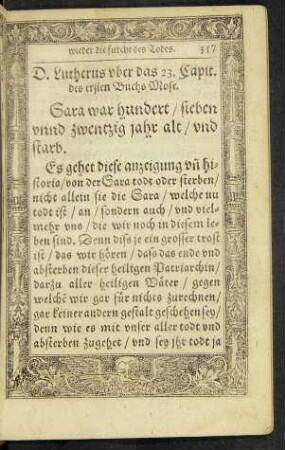 wieder die furcht des Todes. 357
D. Lutherus vber das 23. Capit.
des ersten Buchs Mose.
Sara war hundert / sieben
vnnd zwentzig jahr alt / vnd
starb.
Es gehet diese anzeigung vñ hi-
storia / von der Sara todt oder sterben /
nicht allein sie die Sara / welche nu
todt ist / an / sondern auch / vnd viel-
mehr vns / die wir noch in diesem le-
ben sind. Denn diß je ein grosser trost
ist / das wir hören / daß das ende vnd
absterben dieser heiligen Patriarchin /
darzu aller heiligen Väter / gegen
welchẽ wir gar für nichts zurechnen /
gar keiner andern gestalt geschehen sey /
denn wie es mit vnser aller todt vnd
absterben zugehet / vnd sey jhr todt ja